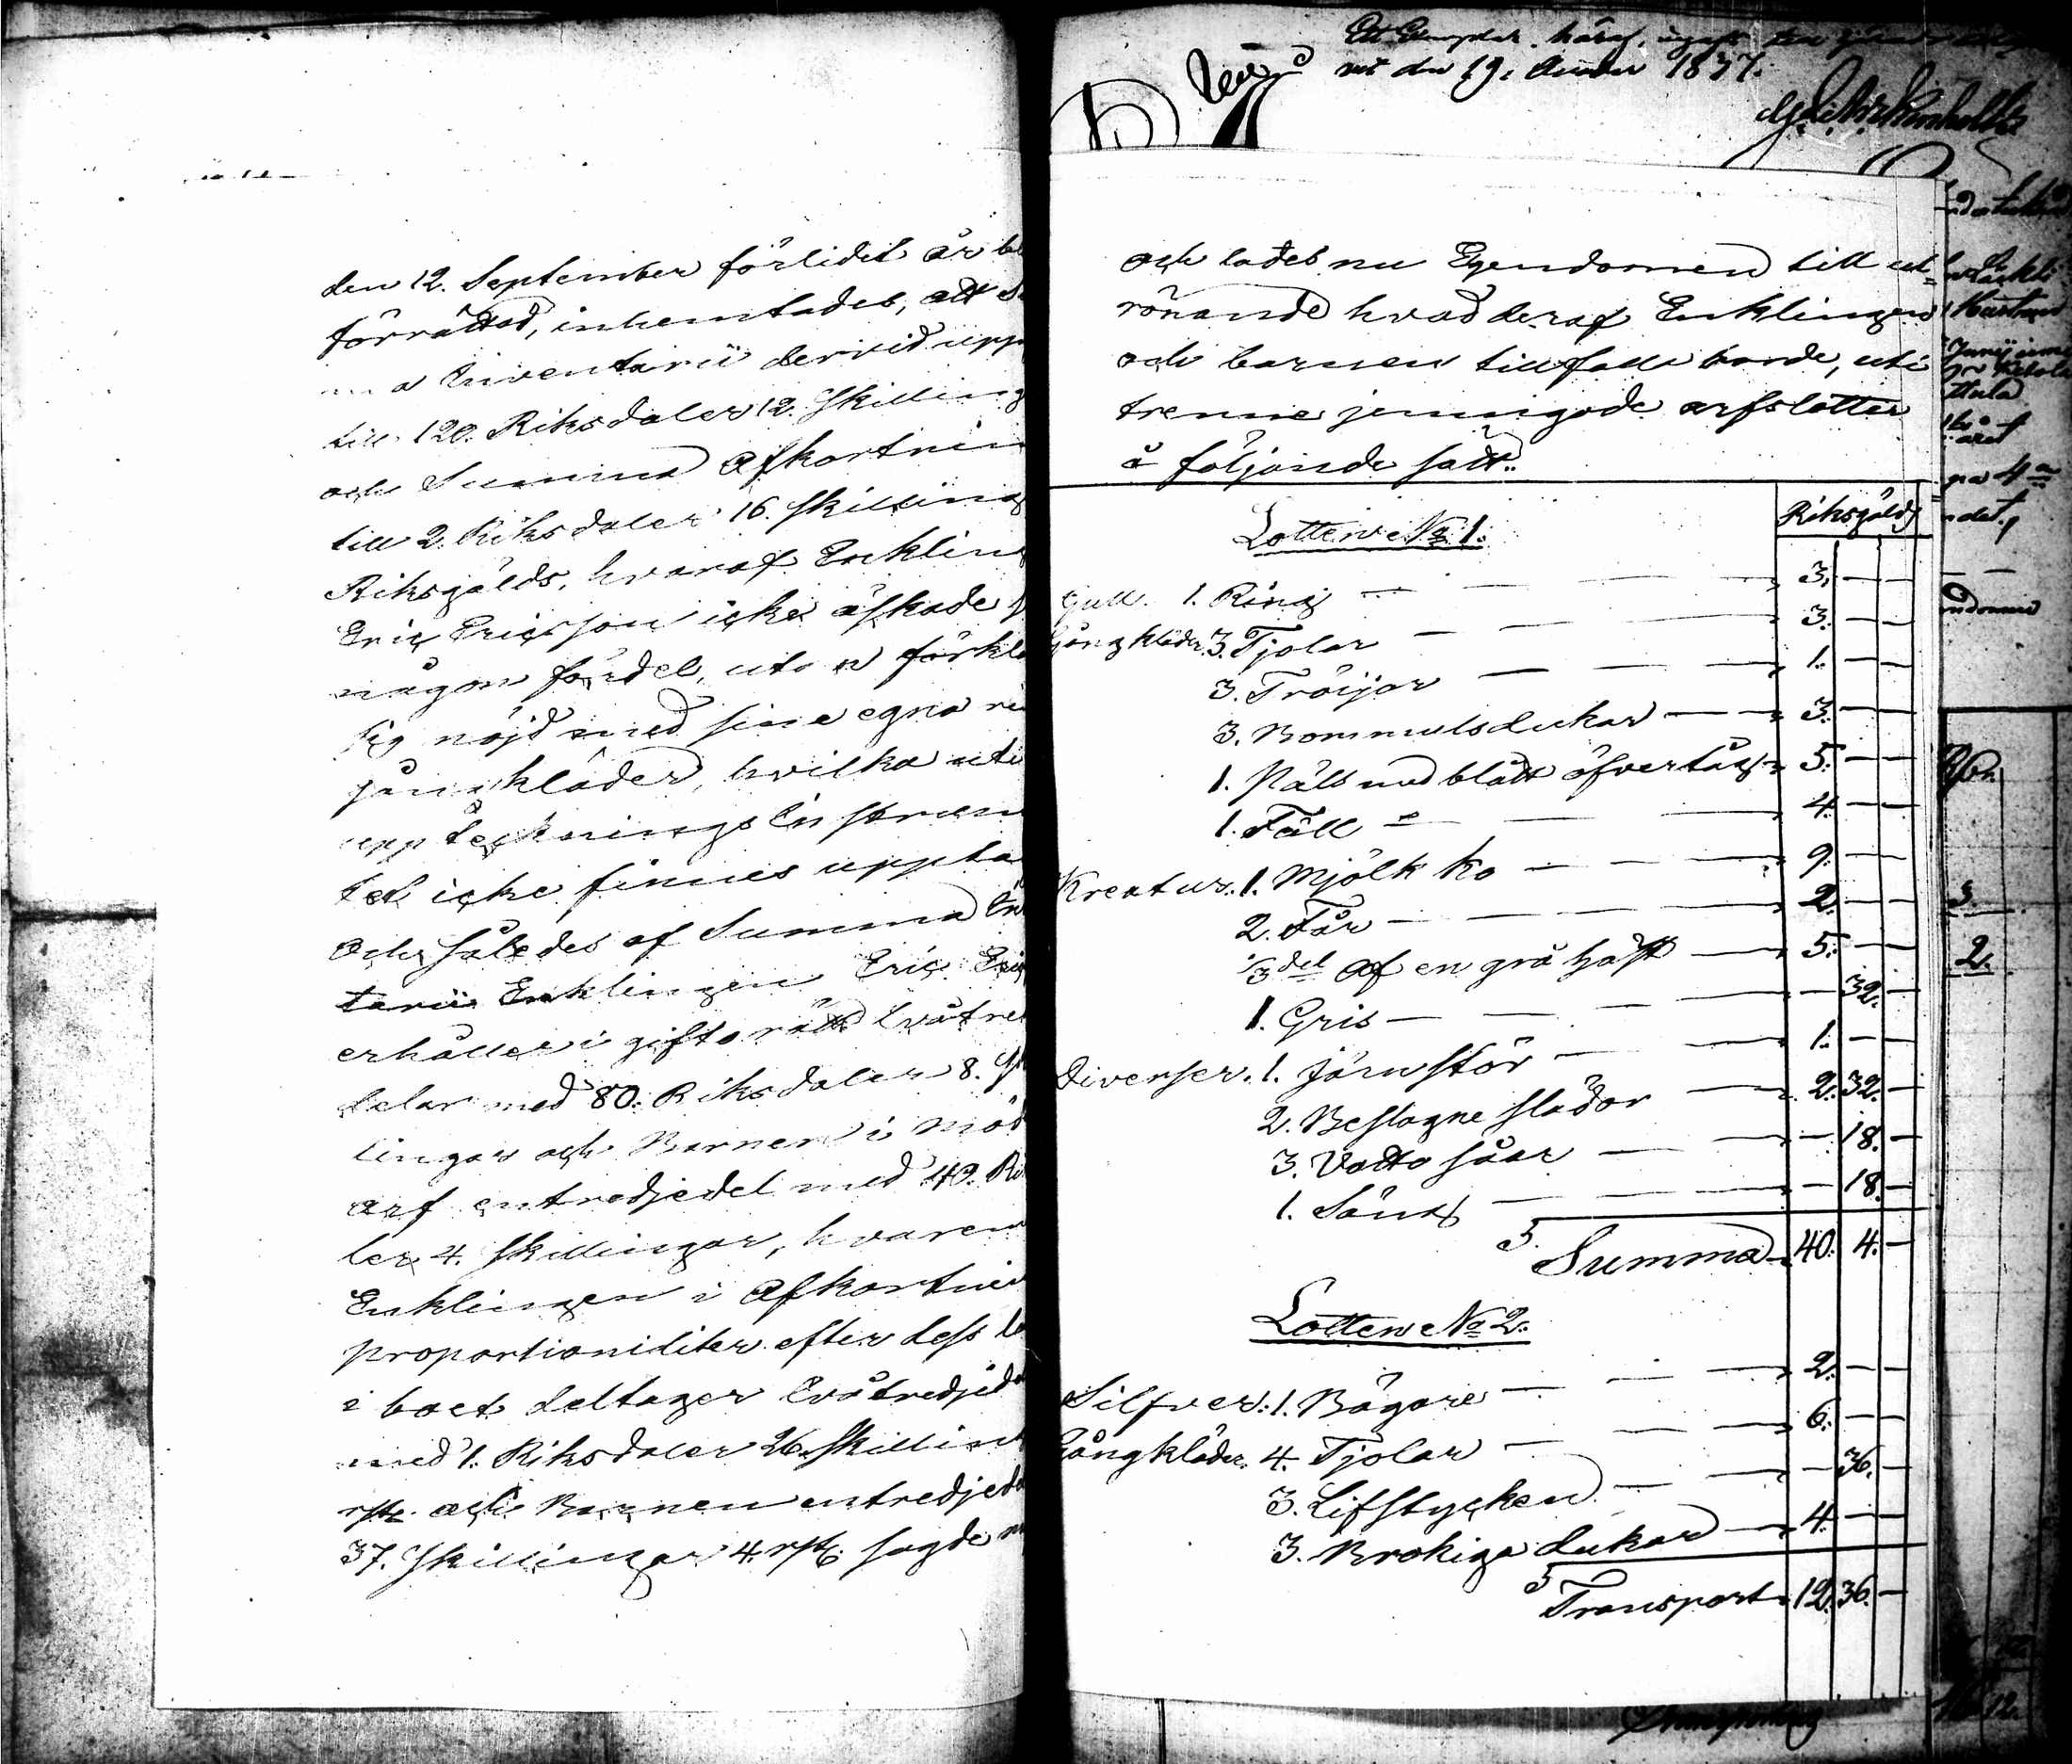 den 12. September förlidet år bl
förrättad, inhemtades, att S
ma Inventarii dervid upp
till 120. Riksdaler 12. Skilling
och Summa Afkortnin
till 2. Riksdaler 16. Skilling
Riksgälds, hvaraf Enkling
Eric Ericsson icke äskade s
någon fördel, utan förkla
sig nöjd med sine egna
gångkläder, hvilka uti
uppteckningsInstrumen
tet icke finnes uppta
och således af Summa In
tarii Enklingen Eric Eric
erhåller i giftorätt tvåtre
delar med 80. Riksdaler 8. Sk
lingar och Barnen i möd
arf entredjedel med 40. Rik
ler 4. Skillingar, hvaren
Enklingen i Afkortnin
proportionaliter efter dess
i boet deltager tvåtredjedel
med 1. Riksdaler 26. Skilling
rst. och Barnen entredjede
37. Skillingar 4. rst. sagde m
den 19. 1837.
och lades nu Egendomen till ut-
rönande hvad deraf Enklingen
och barnen tillfalla borde, uti
trenne jemngode arfslotter
å följande sätt:
Riksgälds
Lotten No 1.
Gull. 1. Ring 3. — —
Gångkläder 3. Tjolar 3. — —
3. Tröijor 1. — —
3. Bommulsdukar 3. — —
1. Päls med blått öfvertåg 5. — —
1. Fäll 4. — —
Kreatur. 1. Mjölk ko 9. — —
2. Får 2. — —
1/3 del af en grå häst 5. — —
1. Gris — 32. —
Diverser. 1. Järnstör 1. — —
2. Beslagne slädor 2. 32. —
3. Vatto såar — 18. —
1. Säng — 18. —
Summa 40. 4. —
Lotten No 2.
Silfver. 1. Bägare 2. — —
Gångkläder. 4. Tjolar 6. — —
3. Lifstycken — 36. —
3. Brokiga dukar 4. — —
Transport 12. 36. —